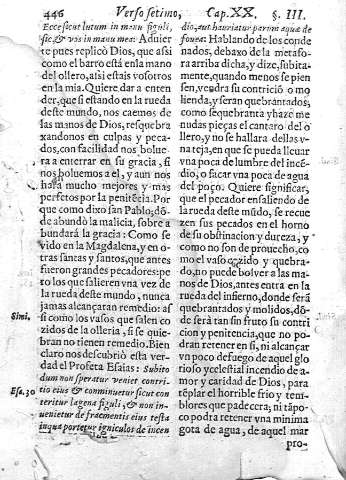 446 Verso setimo, Cap. XX. §. III.
Ecce sicut lutum in manu figuli,
sic, & vos in manu mea: Aduier
te pues replicò Dios, que assi
como el barro està en la mano
del ollero, aísi estais vosotros
en la mia. Quiere dar a enten
der, que si estando en la rueda
deste mundo, nos caemos de
las manos de Dios, resquebra
xandonos en culpas y peca-
dos, con facilidad nos bolue-
ra a enterrar en su gracia, si
nos boluemos a el, y aun nos
harà mucho mejores y mas
perfetos por la penitécia. Por
que como dixo san Pablo; dó-
de abundò la malicia, sobre a
bundarà la gracia: Como se
vido en la Magdalena, y en o-
tras santas y santos, que antes
fueron grandes pecadores: pe-
ro los que salieren vna vez de
la rueda deste mundo, nunca
jamas alcançaran remedio: as
si como los vasos que salen co
Simi. zidos de la olleria, si se quie-
bran no tienen remedio. Bien
claro nos descubriò esta ver-
dad el Profeta Esaias: Subito
dum non speratur veniet contri-
Esa. 30 tio eius & comminuetur sicut con
teritur lagena figuli, & non in-
uenietur de fracmentis eius testa
in qua portetur igniculos de incen
dio, aut hauriatur parum aquæ de
fouea. Hablando de los conde
nados, debaxo de la metafo-
ra arriba dicha, y dize, subita-
mente, quando menos se pien
sen, vendra su contriciò o mo
lienda, y seran quebrantados,
como se quebranta y haze me
nudas pieças el cantaro del o
llero, y no se hallara dellas vn
na teja, en que se pueda lleuar
vna poca de lumbre del incé-
dio, o sacar vna poca de agua
del poço. Quiere significar,
que el pecador en saliendo de
la rueda deste mũdo, se recue
zen sus pecados en el horno
de su obstinacion y dureza, y
como no son de prouecho, co
mo el vaso cozido y quebra-
do, no puede bolver a las ma-
nos de Dios, antes entra en la
rueda del infierno, donde serà
quebrantados y molidos, dó-
de serà tan sin fruto su contri
cion y penitencia, que no po-
dran retener en si, ni alcançar
vn poco defuego de aquel glo
rioso y celestial incendio de a-
mor y caridad de Dios, para
téplar el horrible frio y tem-
blores que padecera; ni tâpo-
co podra retener vna minima
gota de agua, de aquel mar
pro-